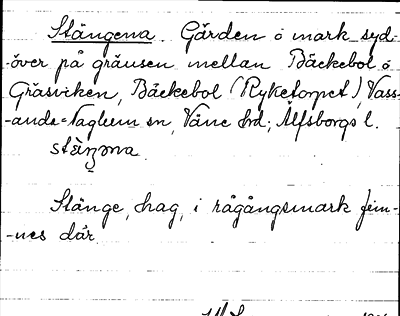 Stängena. Gården o mark syd-
-över på gränsen mellan Bäckebol o
Gräsviken, Bäckebol (Ryketorpet), Vass-
-ända-Naglum sn, Väne hd, Älfsborgs l.
Stänge, hag, i rågångsmark fin-
-nes där.